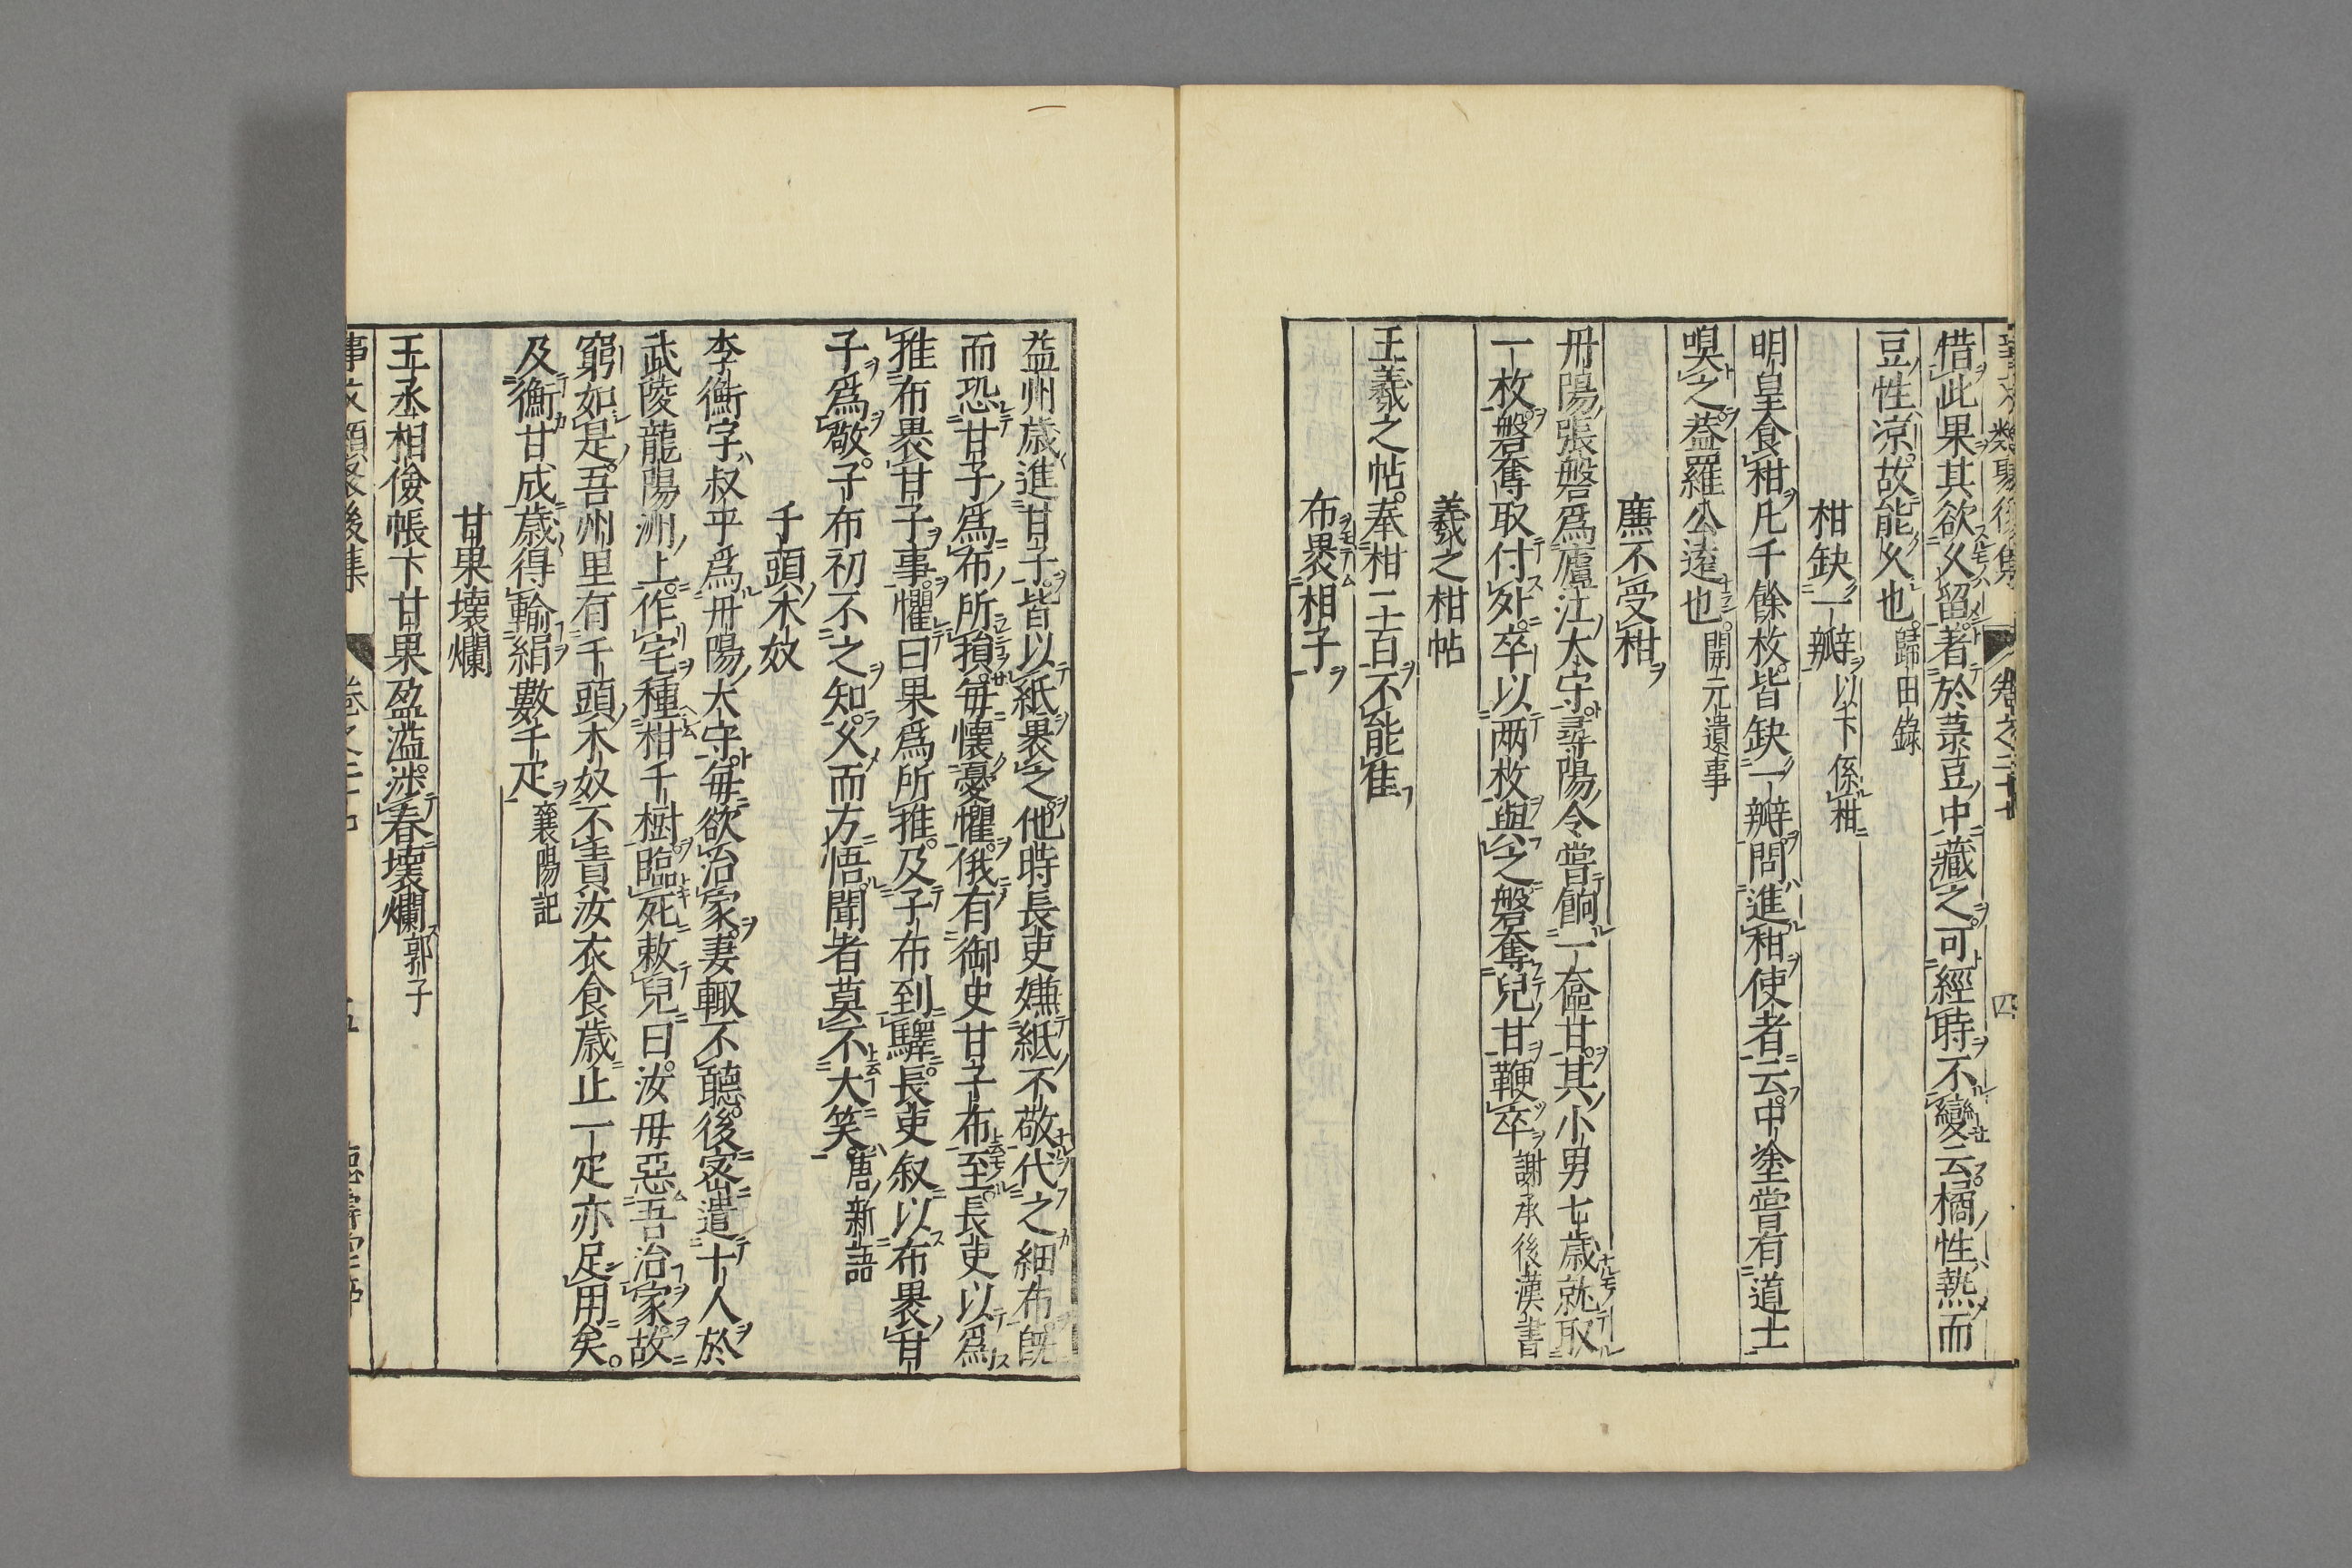 借此果其欲久留者於菉豆中藏之可經時不變云橘性熱而
豆性涼故能久也歸田錄
柑缺一瓣以下係柑
明皇食柑凡千餘枚皆缺一瓣問進柑使者云中塗嘗有道士
嗅之蓋羅公遠也開元遺事
廉不受柑
丹陽張磐爲廬江太守尋陽令嘗餉一奩甘其小男七歲就取
一枚磐奪取付外卒以兩枚與之磐奪兒甘鞭卒謝承後漢書
羲之柑帖
王羲之帖奉柑二百不能佳
布裹柑子
益州歲進甘子皆以紙裹之他時長吏嫌紙不敬代之細布旣
而恐甘子爲布所損每懷憂懼俄有御史甘子布至長吏以爲
推布裹甘子事懼曰果爲所推及子布到驛長吏叙以布裹甘
子爲敬子布初不之知父而方悟聞者莫不大笑唐新語
千頭木奴
李衡字叔平爲丹陽太守每欲治家妻輒不聽後密遣十人於
武陵龍陽洲上作宅種柑千樹臨死敕兒曰汝母惡吾治家故
窮如是吾州里有千頭木奴不責汝衣食歲止一疋亦足用矣
及衡甘成歲得輸絹數千疋襄陽記
甘果壞爛
王丞相儉帳下甘果盈溢涉春壞爛郭子